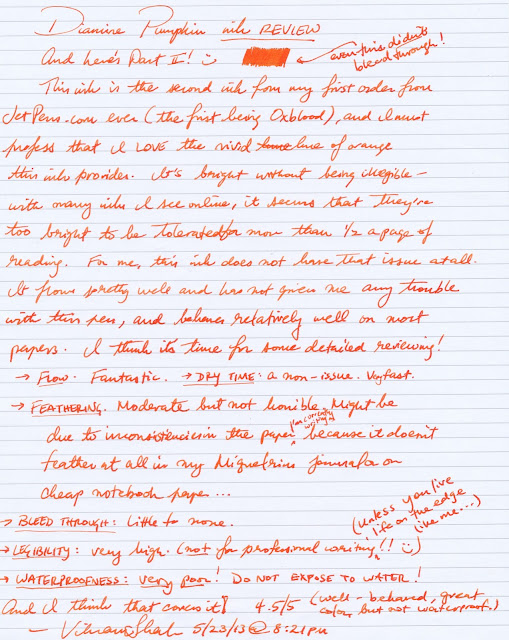 Diamine Pumpkin ink REVIEW
And here's Part II! :)
even this didn't
bleed through!
This ink is the second ink from my first order from
JetPens.com ever (the first being Oxblood), and I must
profess that I LOVE the vivid hue of orange
this ink provides. It's bright without being illegible –
with many inks I see online, it seems that they're
too bright to be tolerated for more than 1/2 a page of
reading. For me, this ink does not have that issue at all.
It flows pretty well and has not given me any trouble
with this pen, and behaves relatively well on most
papers. I think it's time for some detailed reviewing!
→ FLOW. Fantastic. → DRY TIME: a non-issue. Very fast.
→ FEATHERING. Moderate but not horrible. Might be
due to inconsistencies in the paper I'm currently writing on because it doesn't
feather at all in my Miquelrius journal or on
cheap notebook paper...
→ BLEED THROUGH: Little to none.
→ LEGIBILITY: very high. (not for professional writing!! :)
(unless you live
life on the edge
like me...)
→ WATERPROOFNESS: very poor! DO NOT EXPOSE TO WATER!
And I think that covers it! 4.5/5 (well-behaved, great
color, but not waterproof.)
— 5/23/13 @ 8:21pm